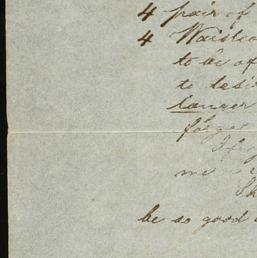 4 pair of
4 Waistco
to be of
to desi
larger
forget
me
Sh
be so good